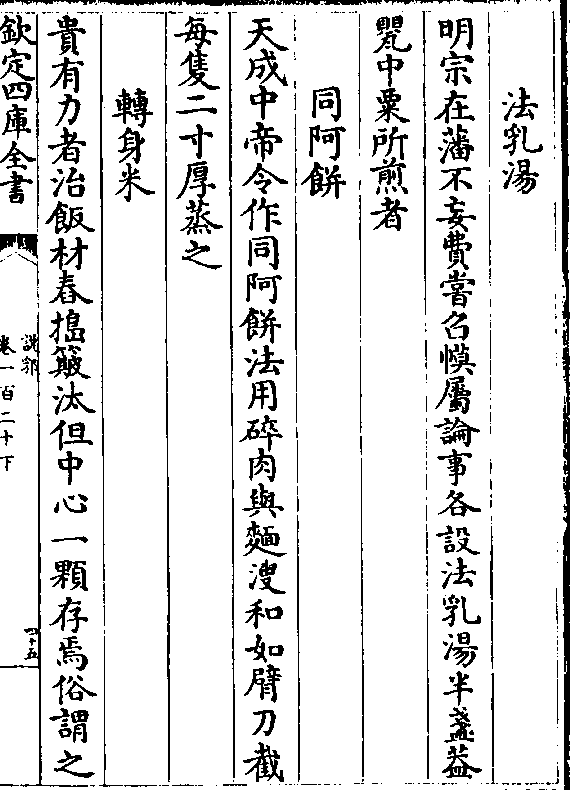 法乳湯
明宗在藩不妄費嘗召幙屬論事各設法乳湯半盞葢
甖中粟所煎者
同阿餅
天成中帝令作同阿餅法用碎肉與麵溲和如臂刀截
每隻二寸厚蒸之
轉身米
貴有力者治飯材舂搗簸汰但中心一顆存焉俗謂之
欽定四庫全書
說郛
卷一百二十下
四十五